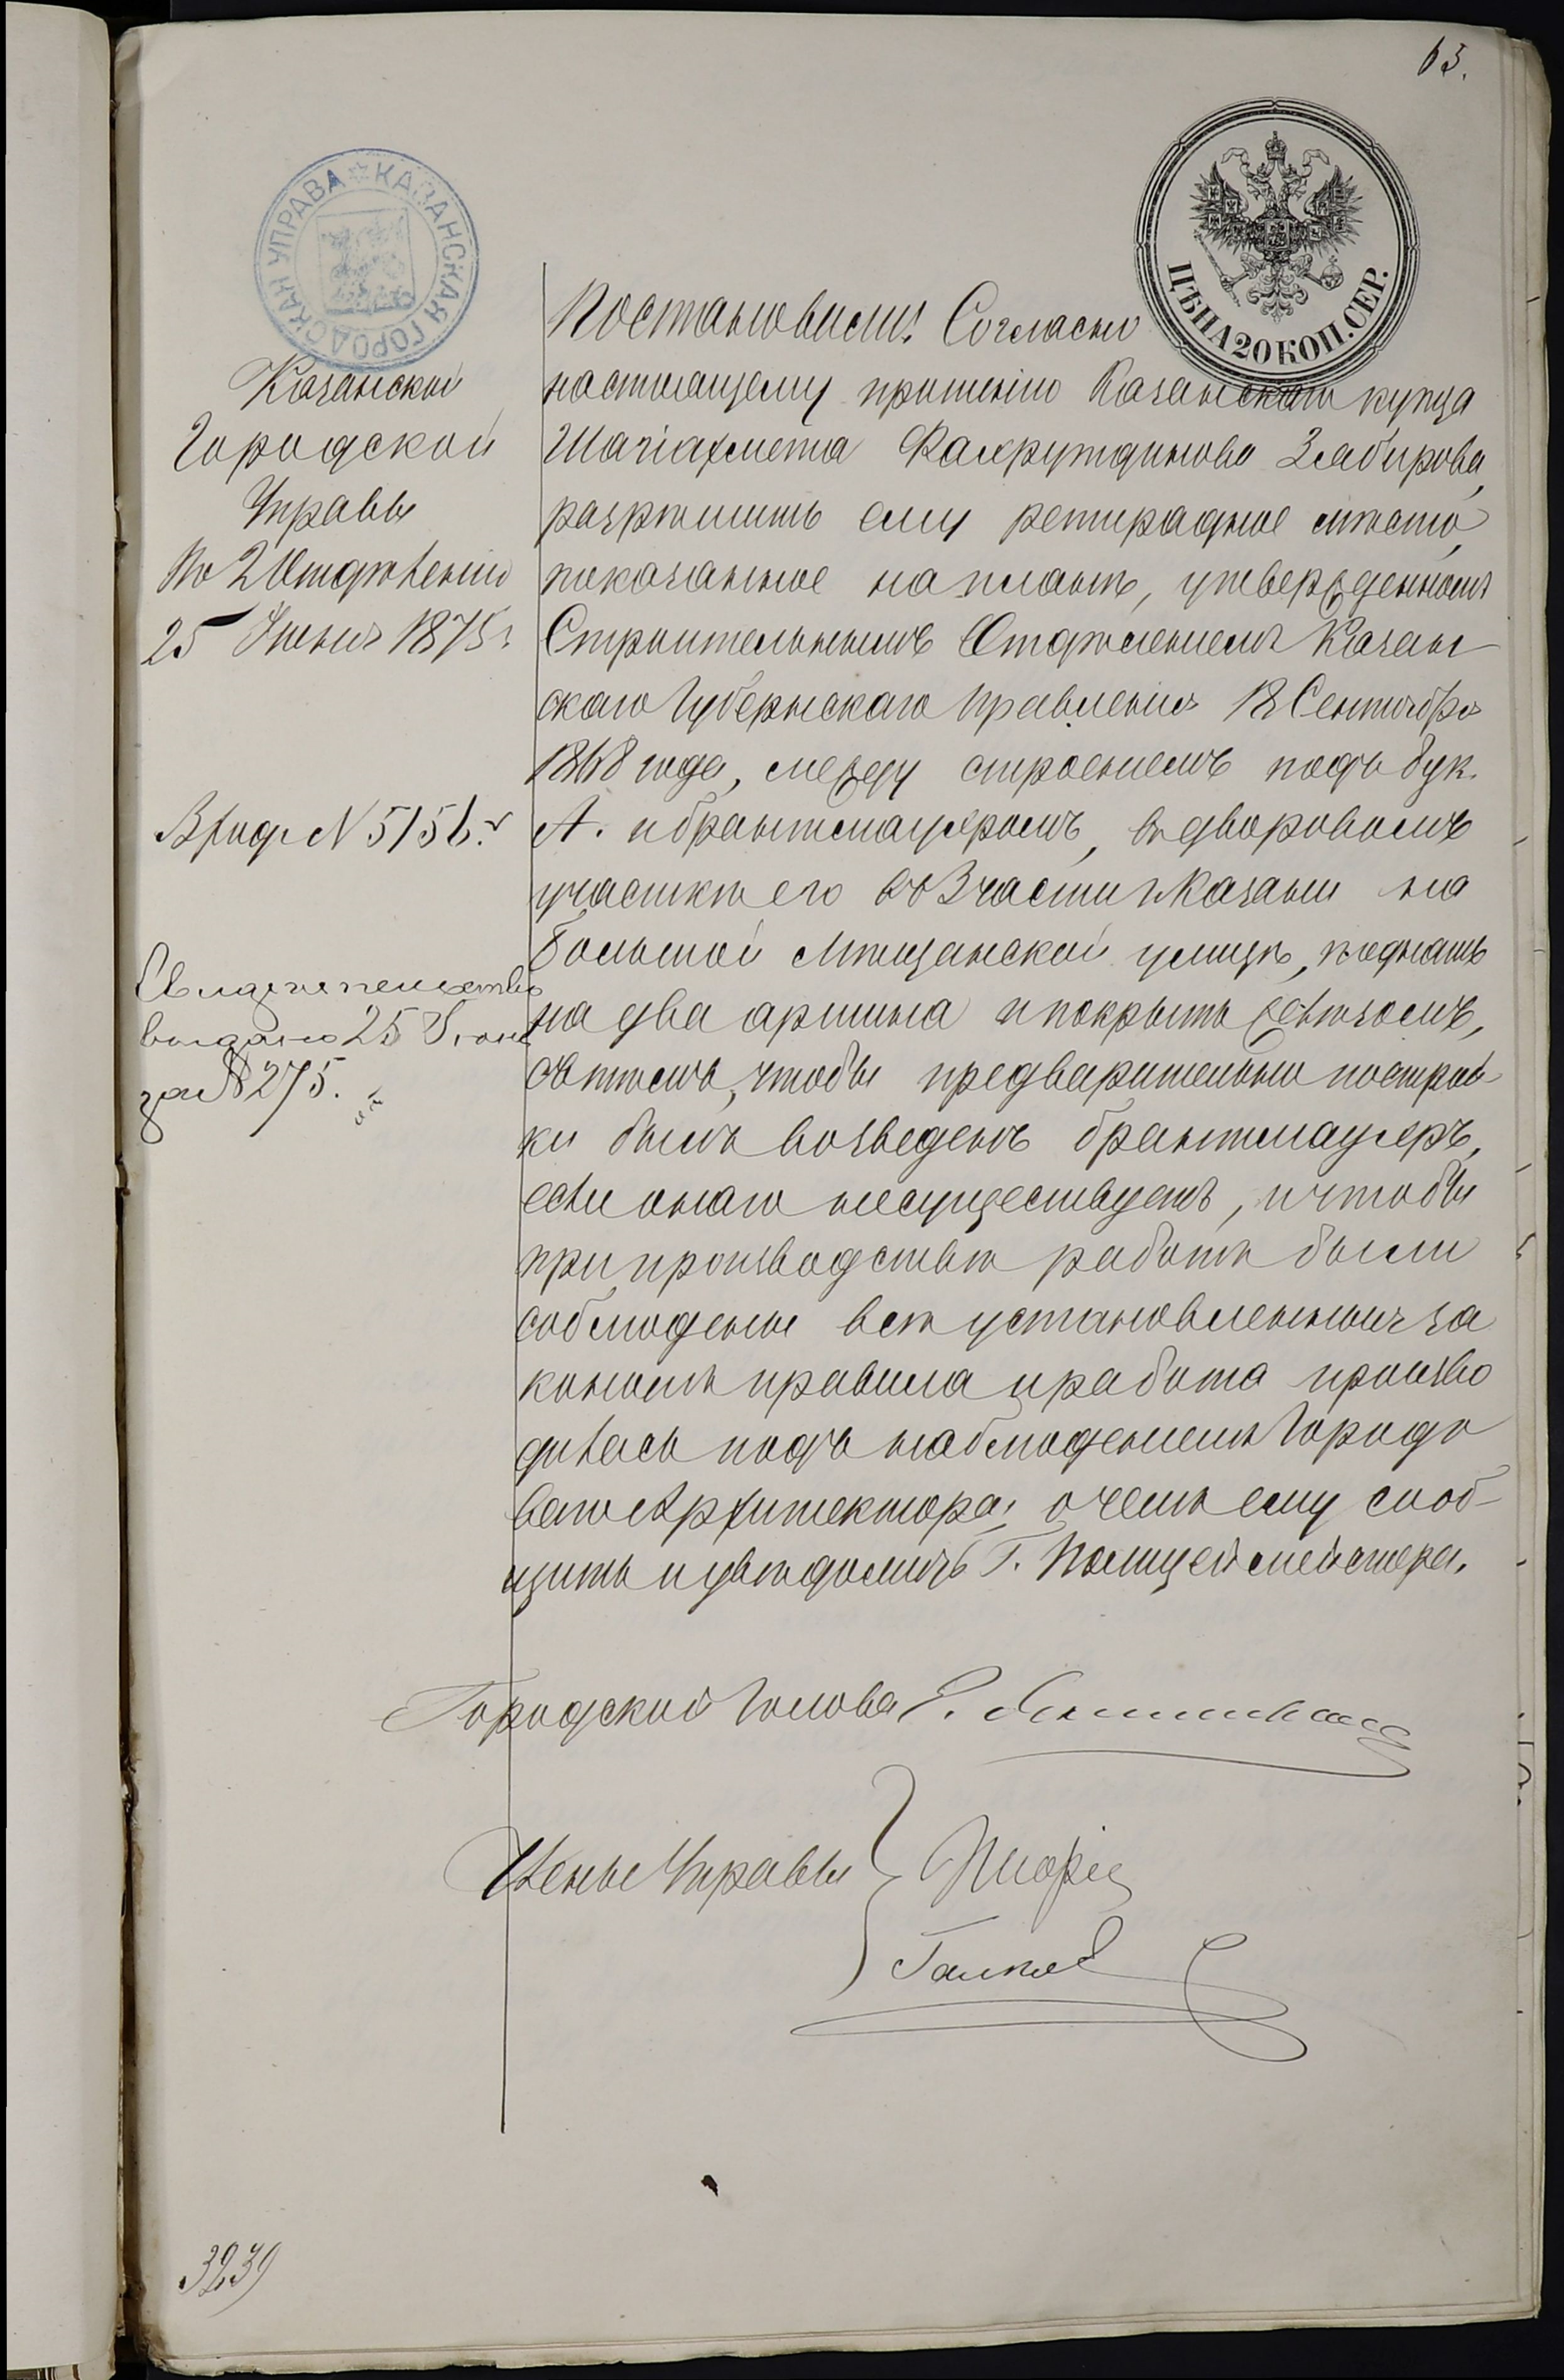 63.
КАЗАНСКАЯ ГОРОДСКАЯ УПРАВА
ЦѢНА 20 КОП. СЕР.
Казанской
Городской
Управы
По 2 Отдѣленію
25 Іюня 1875 г.
Вход. N 5156.
Свидетельство
выдано 25 Іюня
за № 275.
Постановили: Согласно
настоящему прошенію Казанскаго купца
Шагіахмета Фахрутдинова Забирова,
разрѣшить ему ретирадное мѣсто,
показанное на планѣ, утвержденномъ
Строительнымъ Отдѣленіемъ Казан-
скаго Губернскаго Правленія 18 Сентября
1868 года, между строеніемъ подъ бук.
А. и брантмауеромъ, въ дворовомъ
участкѣ его во 3 части г. Казани на
Большой Мѣщанской улицѣ, поднять
на два аршина и покрыть желѣзомъ,
съ тѣмъ, чтобы предварительно построй-
ки былъ возведенъ брантмауеръ,
если онаго несуществуетъ, и чтобы
при производствѣ работъ были
соблюдены всѣ установленныя за
кономъ правила и работа произво
дилась подъ наблюденіемъ Городо
ваго Архитектора, о чемъ ему сооб-
щить и увѣдомить Г. Полицеймейстера.
Городской Голова Е.
Члены Управы
3239